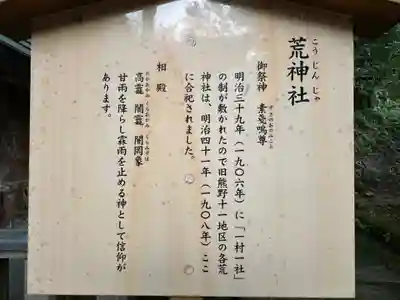 こうじんじゃ
荒神社
御祭神 素戔嗚尊
すさのおのみこと
明治三十九年(一九〇六年)に「一村一社」
の制が敷かれたので旧熊野十一地区の各荒
神社は、明治四十一年(一九〇八年)ここ
に合祀されました。
相殿
たかおかみ くらおかみ くらみつは
高龗 闇龗 闇罔象
甘雨を降らし霖雨を止める神として信仰が
あります。